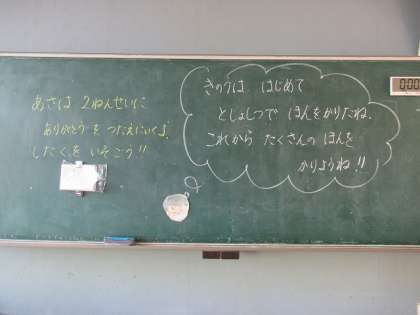 あさは 2ねんせいに
ありがとうを つたえにいくよ!
したくを いそごう!!
きのうは はじめて
としょしつで ほんをかりたね。
これから たくさんの ほんを
かりようね!!